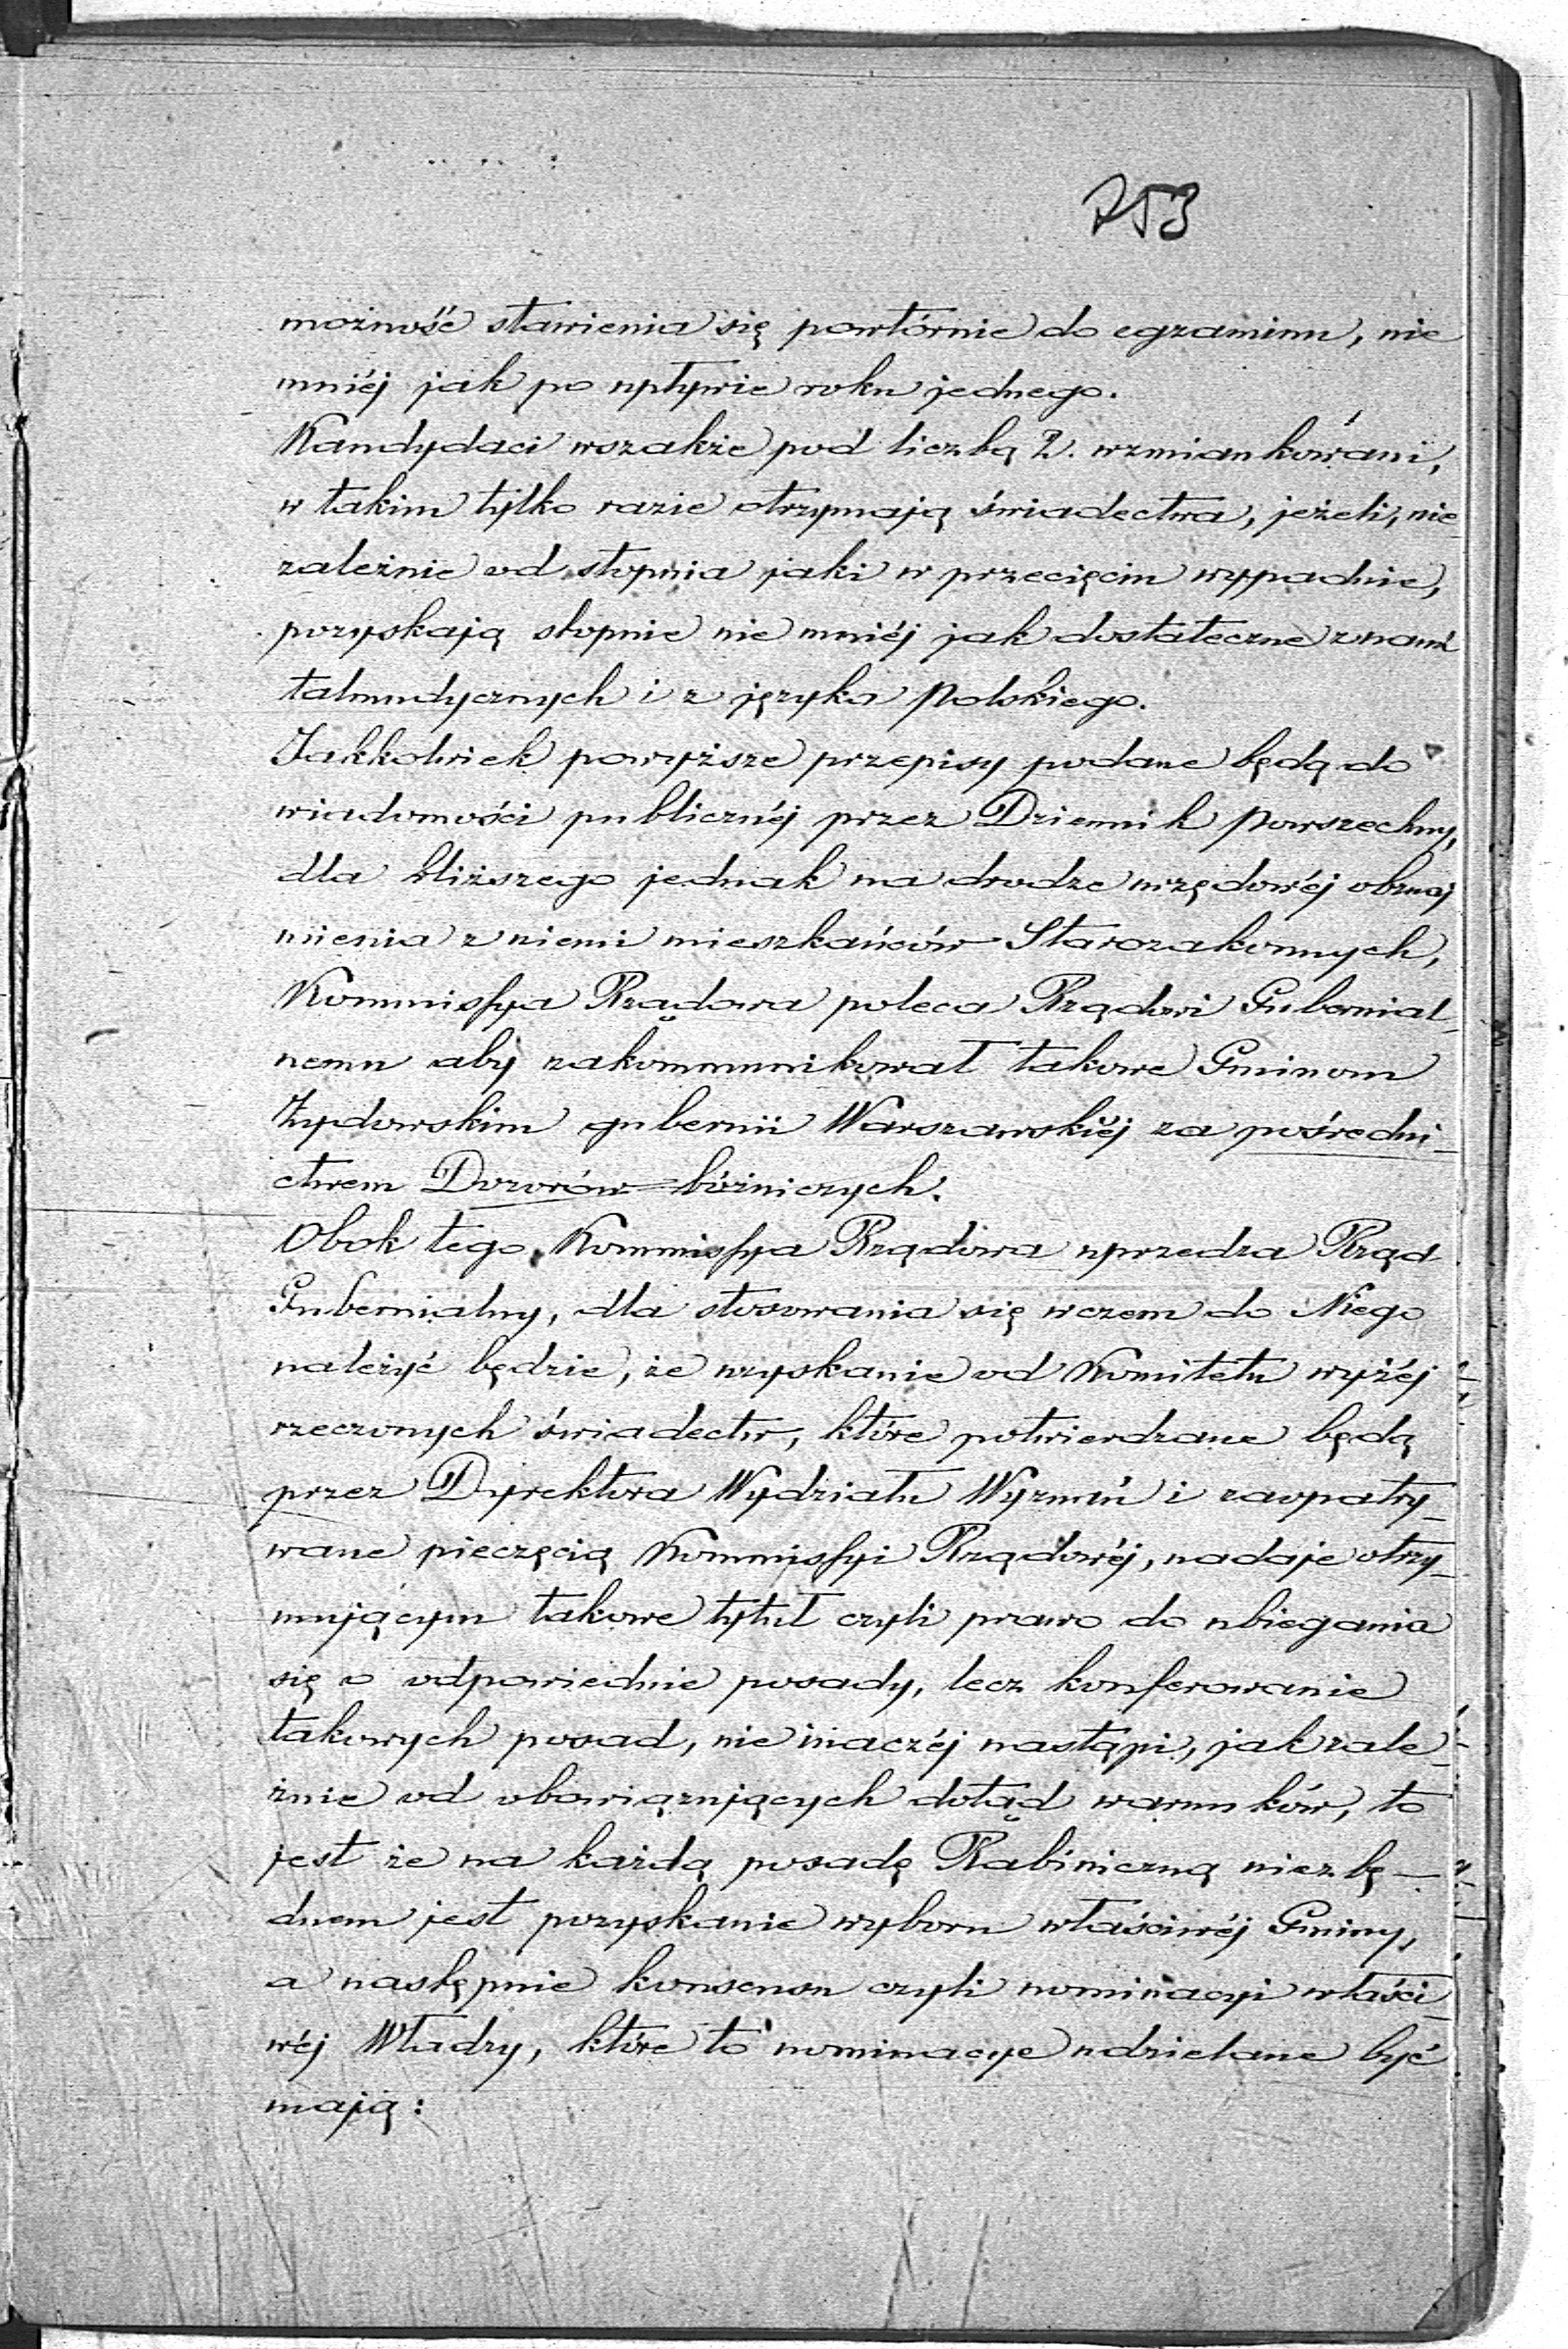 253
możność stawienia się powtórnie do egzaminu, nie
mniéj jak po upływie roku jednego.
Kandydaci wszakże pod liczbą 2. wzmiankowani,
w takim tylko razie otrzymają świadectwa, jeżeli, nie
zależnie od stopnia jaki w przecięciu wypadnie,
pozyskają stopnie nie mniéj jak dostateczne z nauk
talmudycznych i z języka Polskiego.
Jakkolwiek powyższe przepisy podane będą do
wiadomości publicznéj przez Dziennik Powszechny,
dla bliższego jednak na drodze urzędowéj obznaj
mienia z niemi mieszkańców Starozakonnych,
Kommissya Rządowa poleca Rządowi Gubernial_
nemu aby zakommunikował takowe Gminom
Żydowskim gubernii Warszawskiéj za pośredni_
ctwem Dozorów bóżniczych.
Obok tego Kommissya Rządowa uprzedza Rząd
Gubernialny, dla stosowania się w czem do Niego
należyć będzie, że uzyskanie od Komitetu wyżéj
rzeczonych świadectw, które potwierdzane będą
przez Dyrektora Wydziału Wyznań i zaopatry_
wane pieczęcią Kommissyi Rządowéj, nadaje otrzy_
mującym takowe tytuł czyli prawo do ubiegania
się o odpowiednie posady, lecz konferowanie
takowych posad, nie inaczéj nastąpi, jak zale_
żnie od obowiązujących dotąd warunków, to
jest że na każdą posadę Rabiniczną niezbę_
dnem jest pozyskanie wyboru właściwéj Gminy,
a następnie konsensu czyli nominacyi właści_
wéj Władzy, które to nominacye udzielane być
mają: